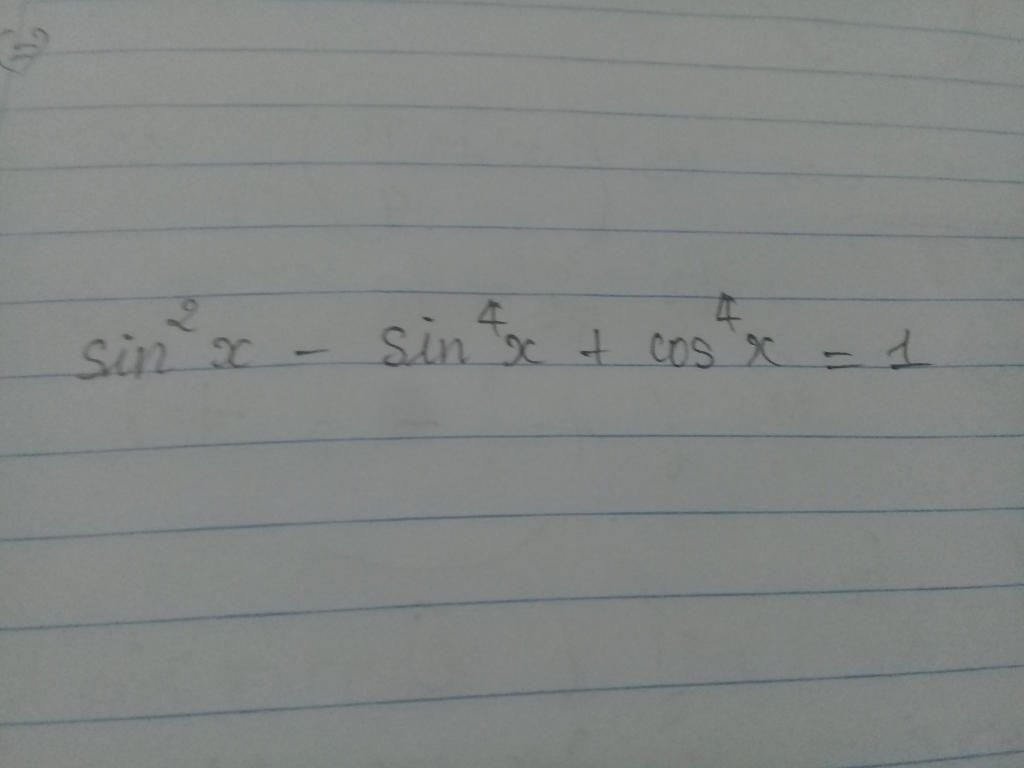 sin²x - sin⁴x + cos⁴x = 1